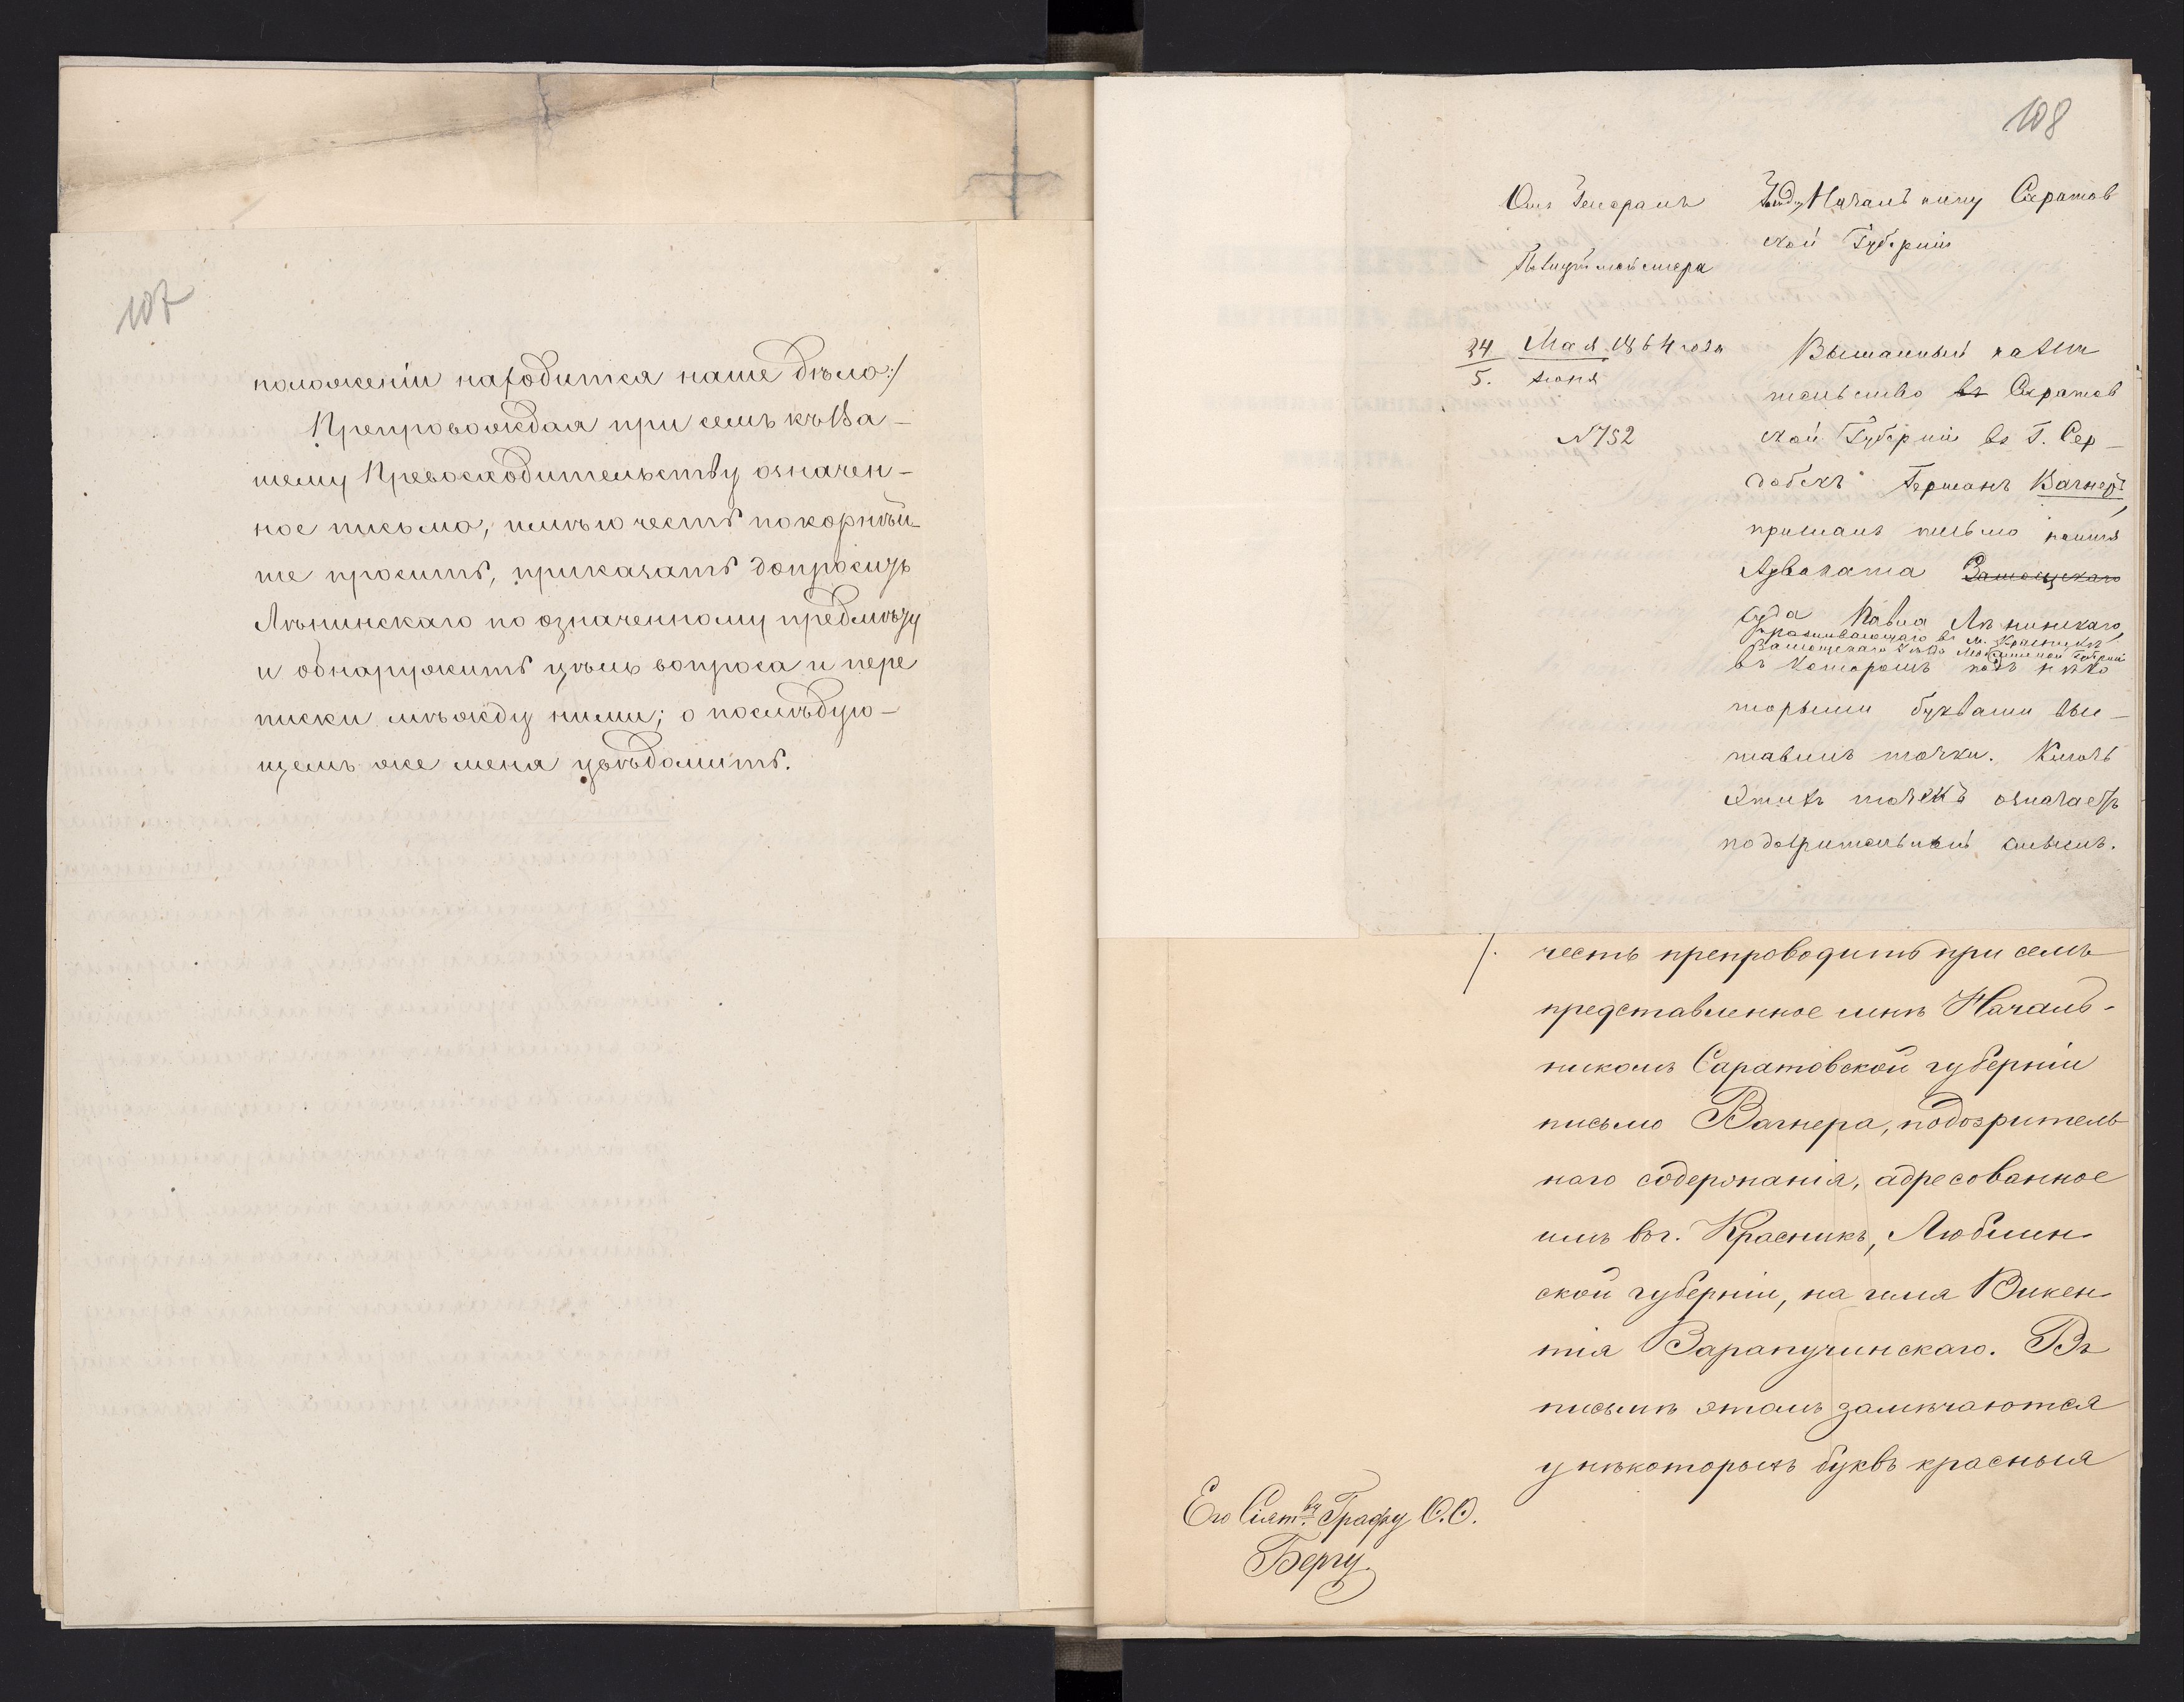 107
положеніи находится наше дѣло:/
Препровождая при семъ къ Ва-
шему Превосходительству означен-
ное письмо, имѣю честь покорнѣй-
ше просить, приказать допросить
Лѣнинскаго по означенному предмѣту
и обнаружить цѣль вопроса и пере
писки мѣжду ними; о послѣдую-
щемъ же меня увѣдомить.
108
Отъ Генералъ
Полицiймейстера
24 Мая 1864 года
5. Іюня
N 752
Начальнику Саратов
ской Губерніи
Высланный на жи
тельство въ Саратов
ской Губерніи въ Г. Сер-
добскъ Германъ Вагнеръ,
прислалъ письмо на имя
Адвоката Замосцскаго
Суда Павла Лѣнинскаго,
проживающаго въ м. Красникѣ
Замосцскаго Уѣзда Люблинской Губерніи
въ которомъ подъ нѣко
торыми буквами выс-
тавилъ точки. Ключь
этихъ точекъ означаетъ
подозрительный смыслъ.
/. честь препроводить при семъ
представленное мнѣ Началь-
никомъ Саратовской губерніи
письмо Вагнера, подозритель
наго содержанія, адресованное
имъ въ г. Красникъ, Люблин-
ской губерніи, на имя Викен-
тія Варапучинскаго. Въ
письмѣ этомъ замѣчаются
у нѣкоторыхъ буквъ красныя
Его Сіят.ву Графу Ѳ.Ѳ.
Бергу.